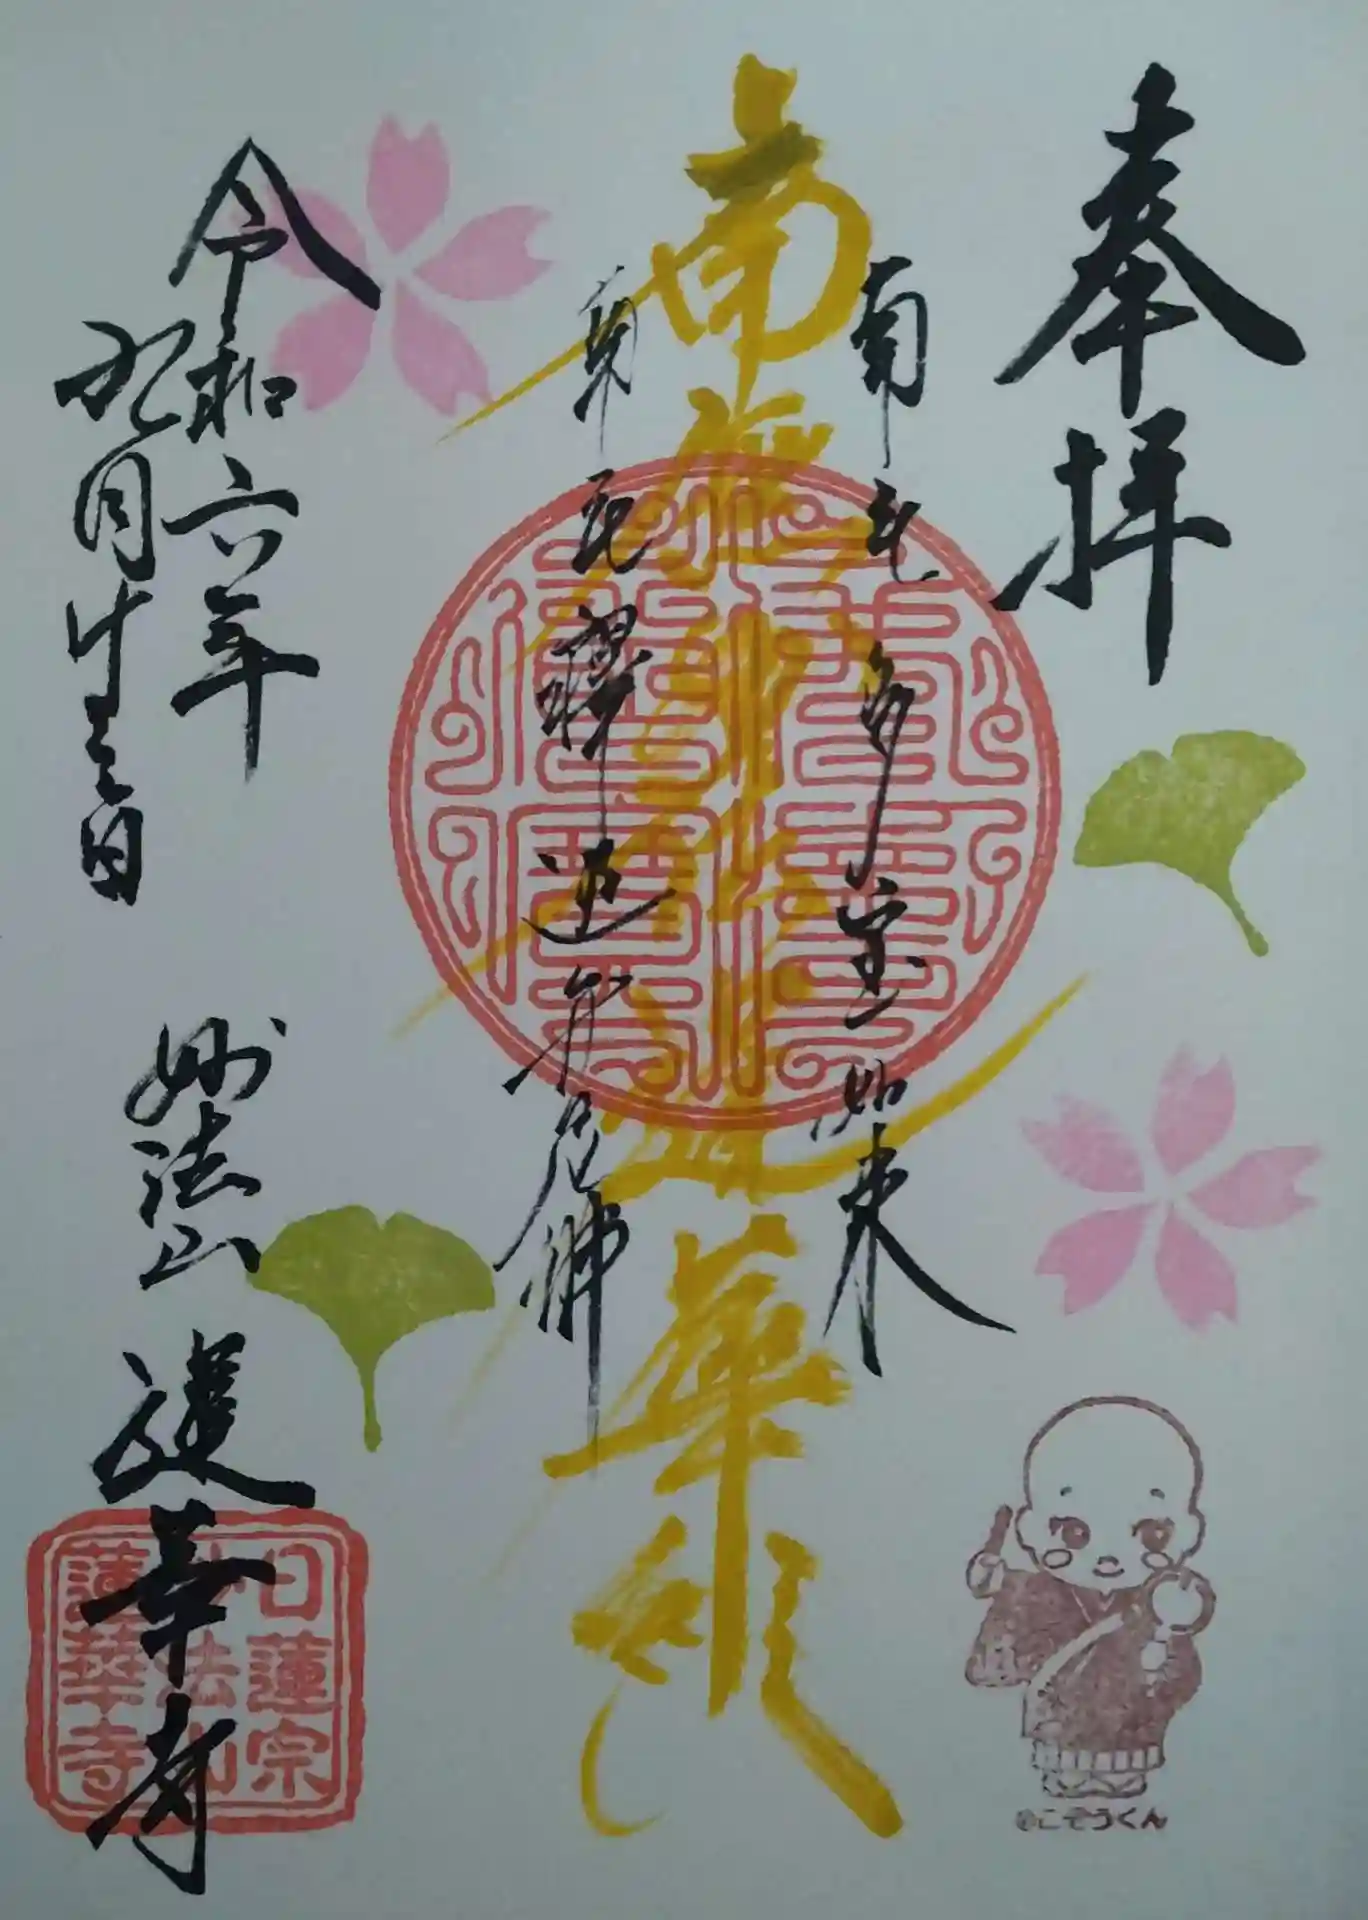 奉拝
南無多宝如来
南無妙法蓮華経
南無釋迦牟尼佛
令和六年
九月廿三日
妙法山 蓮華寺
日蓮宗
妙法山
蓮華寺
@こぞうくん